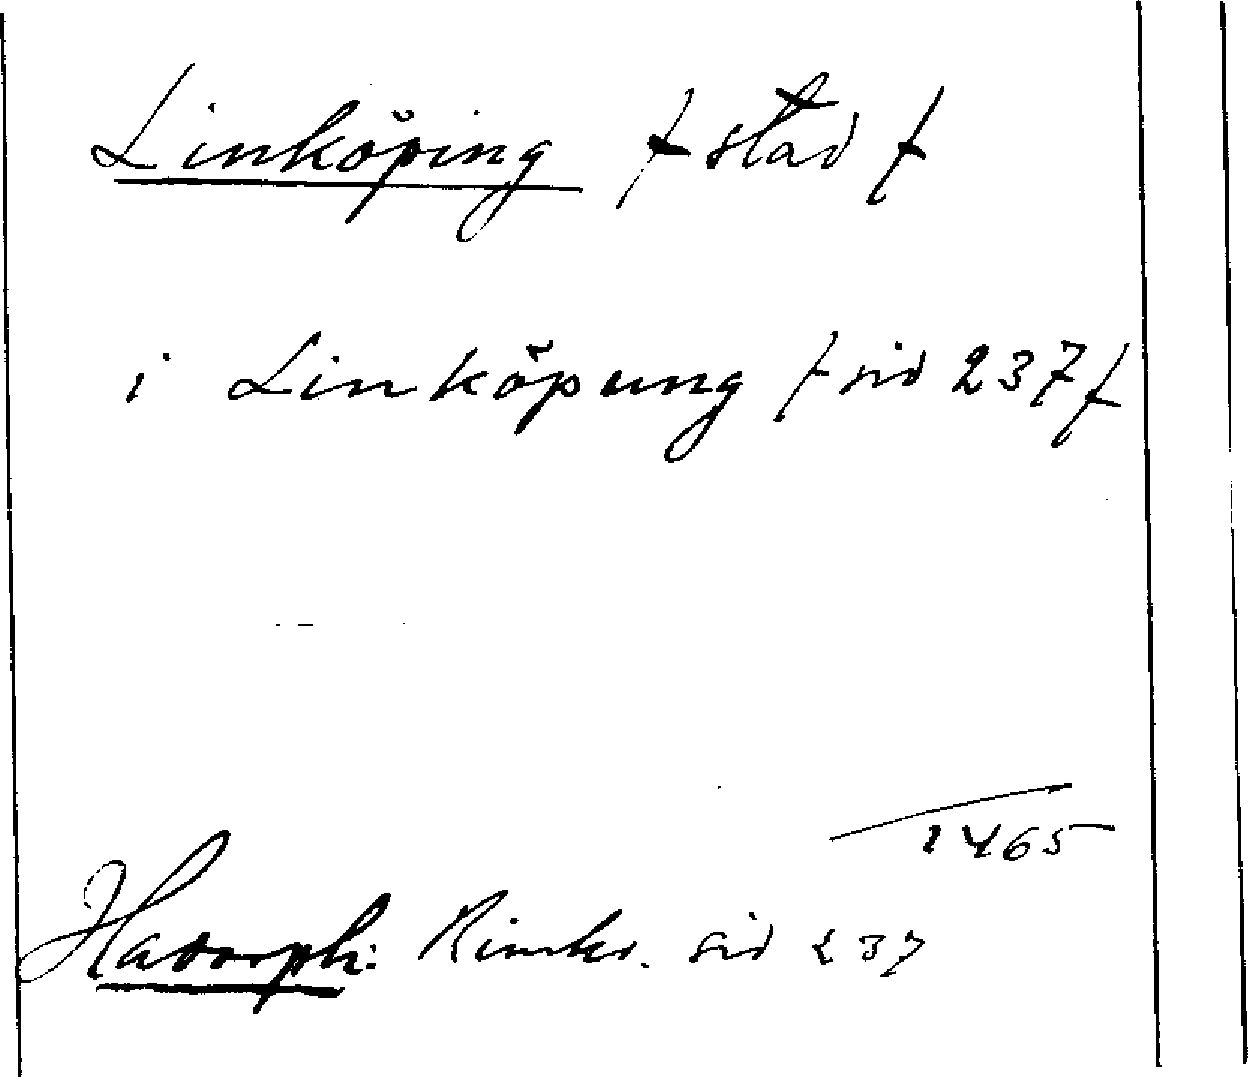 Linköping / stad /
i Linköpung / sid 237 /
1465
Hadorph: Rimkr. sid 237